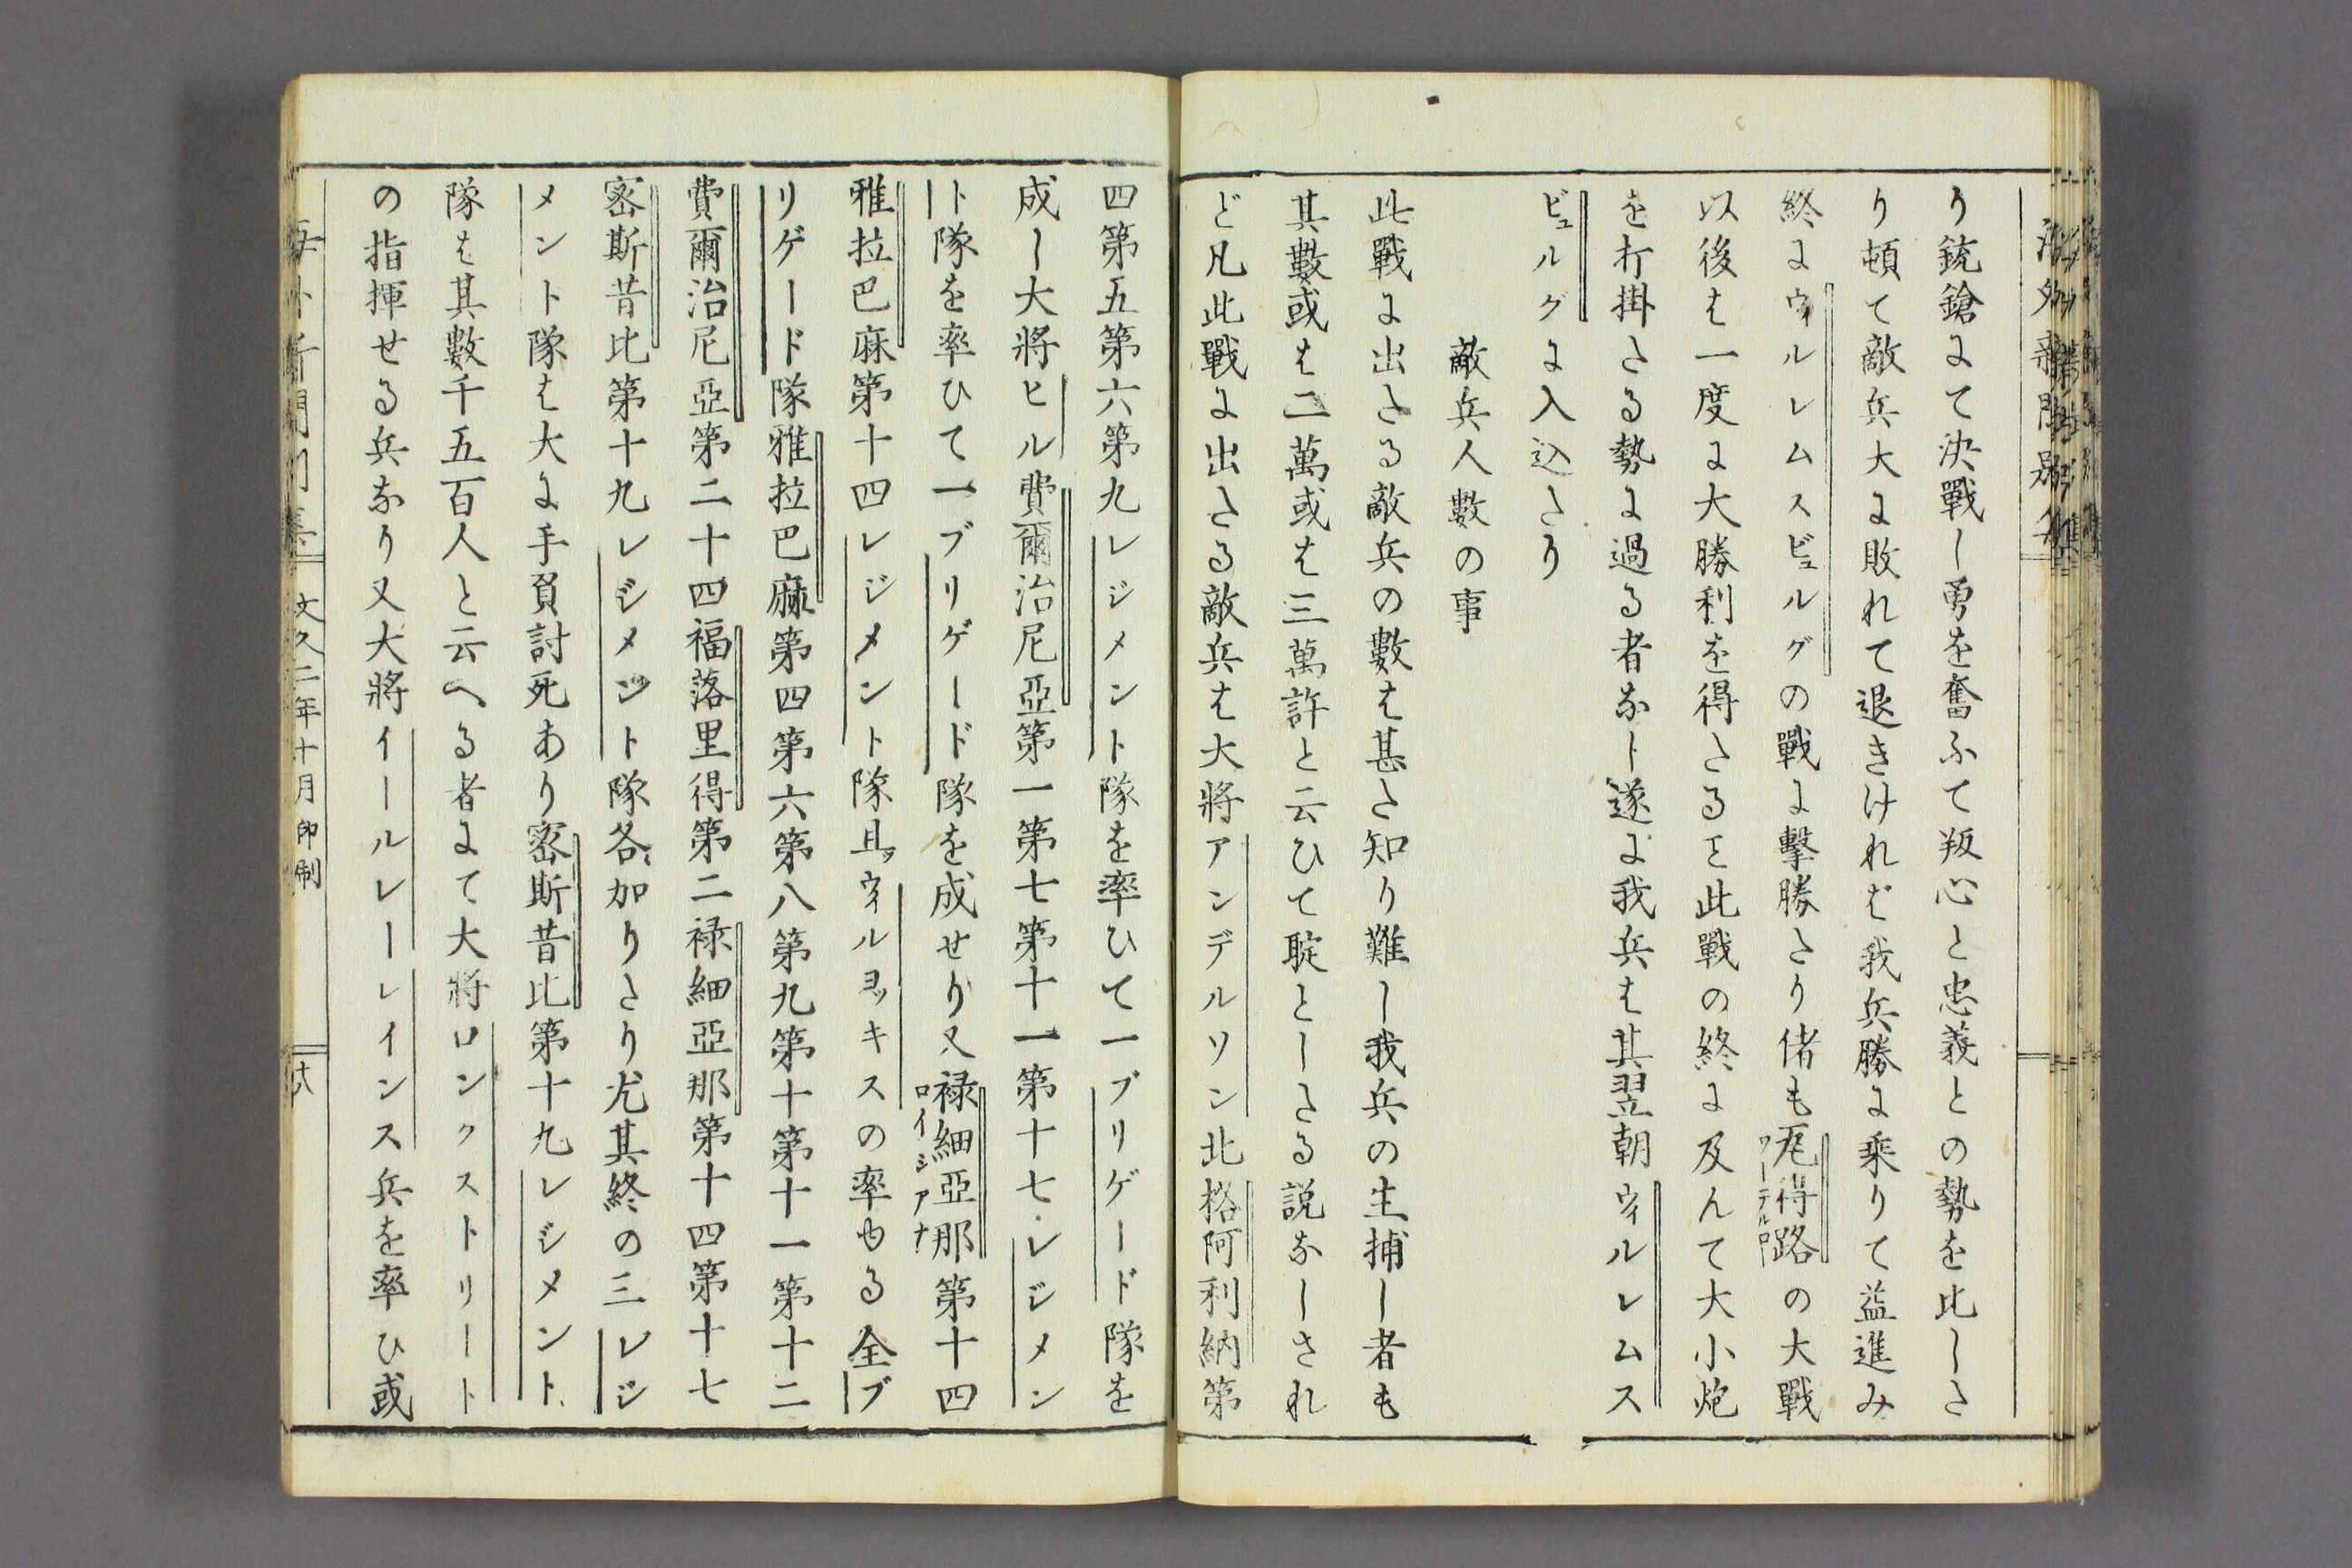 り銃鎗にて決戰し勇を奮ふて叛心と忠義との勢を比しさ
り頓て敵兵大に敗れて退きけれバ我兵勝に乘りて益進み
終にウィルレムスビュルグの戰に擊勝たり偖も尾得路の大戰
ワーテルロー
以後は一度に大勝利を得たるを此戰の終に及んて大小炮
を打掛たる勢に過る者なし遂に我兵は其翌朝ウィルレムス
ビュルグに入込たり
敵兵人數の事
此戰に出たる敵兵の數は甚た知り難し我兵の生捕し者も
其數或は二萬或は三萬許と云ひて聢としたる説なしされ
ど凡此戰に出たる敵兵は大將アンデルソン北格阿利納第
四第五第六第九レジメント隊を率ひて一ブリゲード隊を
成し大將ヒル費爾治尼亞第一第七第十一第十七レジメン
ト隊を率ひて一ブリゲード隊を成せり又祿細亞那第十四
ロイジアナ
雅拉巴麻第十四レジメント隊且ツウィルヨッキスの率ゐる全ブ
リゲード隊雅拉巴麻第四第六第八第九第十第十一第十二
費爾治尼亞第二十四福落里得第二祿細亞那第十四第十七
密斯昔比第十九レジメント隊各加りたり尤其終の三レジ
メント隊は大に手負討死あり密斯昔比第十九レジメント
隊は其數千五百人と云へる者にて大將ロンクストリート
の指揮せる兵なり又大將イールレーレインス兵を率ひ或
文久二年十月印刷